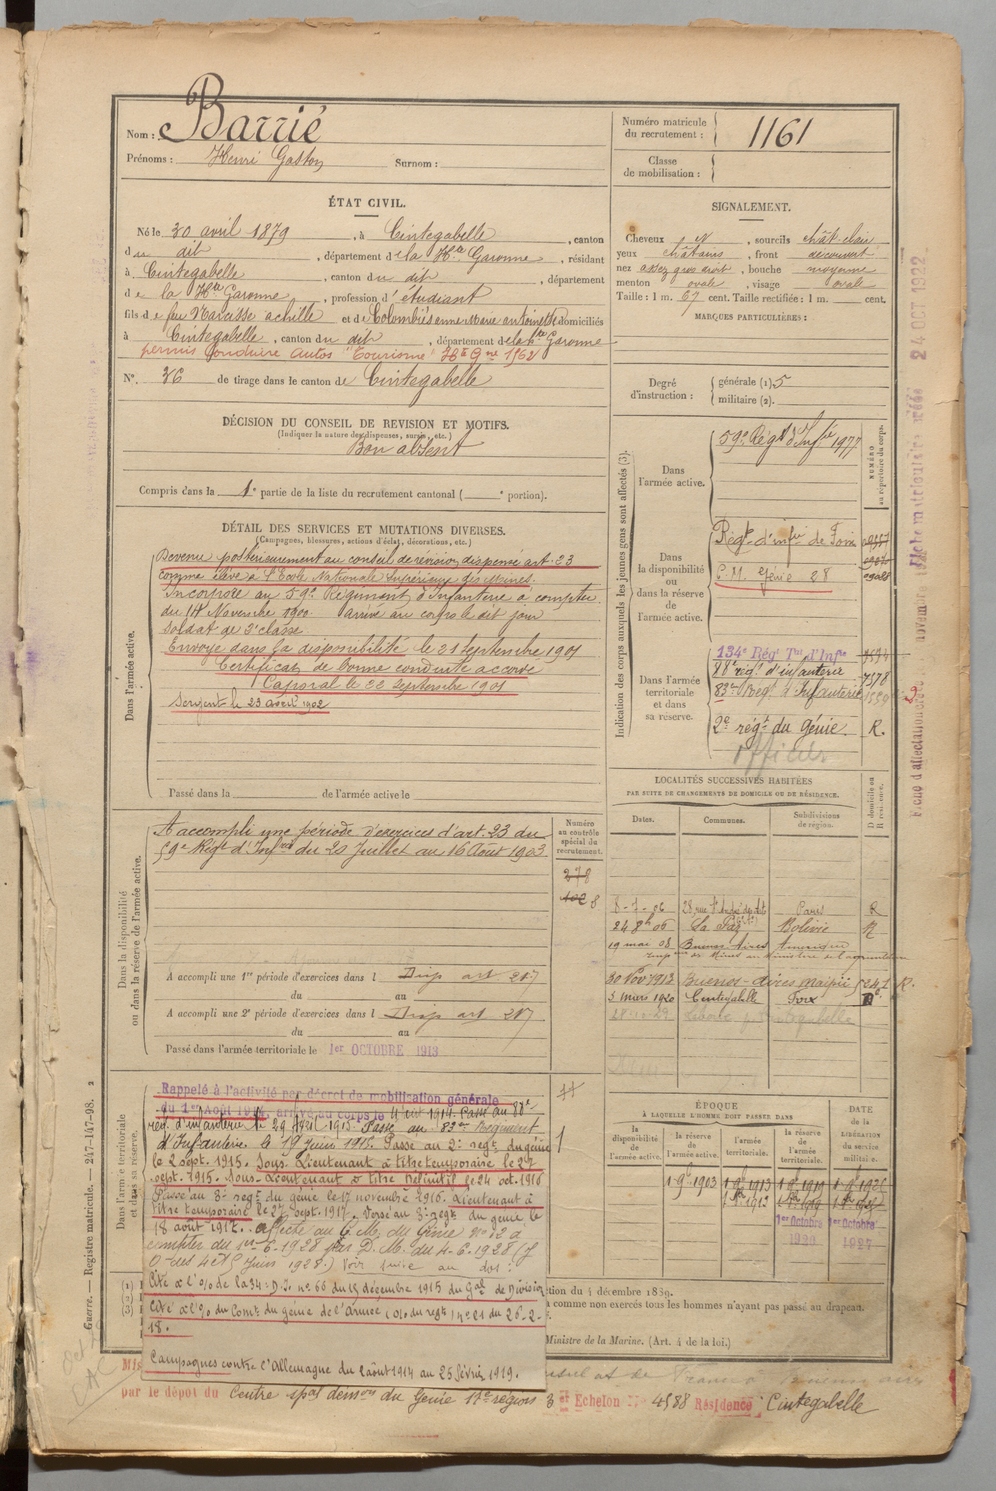 Nom : Barrié
Prénoms : Henri Gaston Surnom :
Numéro matricule du recrutement : 1161
Classe de mobilisation :
ÉTAT CIVIL.
Né le 30 avril 1879, à Cintegabelle, canton
du dit, département de la Hte Garonne, résidant
à Cintegabelle, canton du dit, département
de la Hte Garonne, profession d'étudiant
fils de feu Narcisse achille et de Colombiés anne Marie antoinette domiciliés
à Cintegabelle, canton du dit, département de la Hte Garonne
permis Conduire Autos "Tourisme" Hte Gne 1962
N° 36 de tirage dans le canton de Cintegabelle
SIGNALEMENT.
Cheveux N, sourcils chât-clair
yeux châtains, front découvert
nez assez gros droit, bouche moyenne
menton ovale, visage ovale
Taille : 1 m. 67 cent. Taille rectifiée : 1 m. cent.
MARQUES PARTICULIÈRES :
Degré d'instruction : générale (1) 5
militaire (2).
DÉCISION DU CONSEIL DE REVISION ET MOTIFS.
(Indiquer la nature des dispenses, sursis, etc.)
Bon absent
Compris dans la 1e partie de la liste du recrutement cantonal ( e portion).
DÉTAIL DES SERVICES ET MUTATIONS DIVERSES.
(Campagnes, blessures, actions d'éclat, décorations, etc.)
Dans l'armée active.
Devenu postérieurement au conseil de révision dispensé art. 23
comme élève à l'École Nationale Supérieure des Mines.
Incorporé au 59e Régiment d'Infanterie à compter
du 14 Novembre 1900 arrivé au corps le dit jour
soldat de 2e classe
Envoyé dans la disponibilité le 21 Septembre 1901
Certificat de bonne conduite accordé
Caporal le 22 Septembre 1901
Sergent le 23 avril 1902
Passé dans la de l'armée active le
Indication des corps auxquels les jeunes gens sont affectés (3).
NUMÉRO au répertoire du corps.
Dans l'armée active.
59e Régt d'Infie 1977
Dans la disponibilité ou dans la réserve de l'armée active.
Régt d'infie de Foix
C.M. Génie 28
Dans l'armée territoriale et dans sa réserve.
134e Régt Tal d'Infie
88e régt d'infanterie 7578
83e Régt d'Infanterie
2e régt du Génie. R.
Officier
Fiche matriculaire créée 24 OCT 1922
Dans la disponibilité ou dans la réserve de l'armée active.
A accompli une période d'exercices d'art. 23 du
59e Régt d'Infrie du 20 Juillet au 16 Août 1903
Numéro au contrôle spécial du recrutement.
278
A accompli une 1re période d'exercices dans l Disp art 217
du au
A accompli une 2e période d'exercices dans l Disp art 217
du au
Passé dans l'armée territoriale le 1er OCTOBRE 1913
LOCALITÉS SUCCESSIVES HABITÉES
PAR SUITE DE CHANGEMENTS DE DOMICILE OU DE RÉSIDENCE.
Dates. Communes. Subdivisions de région. D domicile ou R résidence.
8-7-06 28 rue St André des Arts Paris R
24 8bre 06 La Paz Bolivie R
19 mai 08 Buenos Aires Amérique
30 Nov 1912 Buenos-Aires Maipu 5241 R.
5 Mars 1920 Cintegabelle Foix D
Dans l'armée territoriale et dans sa réserve.
Rappelé à l'activité par décret de mobilisation générale
du 1er Août 1914, arrivé au corps le 4 août 1914. Passé au 88e
rég. d'infanterie le 29 Avril 1915. Passé au 83e Régiment
d'Infanterie le 19 Juin 1915. Passé au 2e régt du génie
le 2 sept. 1915. Sous-Lieutenant à titre temporaire le 27
sept. 1915. Sous-Lieutenant à titre définitif le 24 oct. 1916
Passé au 8e régt du génie le 17 novembre 1916. Lieutenant à
titre temporaire le 27 sept. 1917. Versé au 3e régt du génie le
18 août 1917. Affecté au C. M. du Génie no 12 à
compter du 1er-6-1928 par D.M. du 4-6-1928 (J
O des 4 et 5 Juin 1928.) Voir suite au dos :
Cité à l'O/ de la 34e D.I. no 66 du 15 décembre 1915 du Gal de Division
Cité à l'O/ du Comt du génie de l'Armée (O/ du régt) no 21 du 26-2-
18.
Campagnes contre l'Allemagne du 2 août 1914 au 25 février 1919.
ÉPOQUE
À LAQUELLE L'HOMME DOIT PASSER DANS
la disponibilité de l'armée active. la réserve de l'armée active. l'armée territoriale. la réserve de l'armée territoriale.
DATE de la LIBÉRATION du service militaire.
1 9bre 1903
1er Octobre 1920
1er Octobre 1927
comme non exercés tous les hommes n'ayant pas passé au drapeau.
Ministre de la Marine. (Art. 4 de la loi.)
Guerre. — Registre matricule. — 247-147-98.
par le dépôt du Centre spal démon du Génie 17e région 3 et Echelon No 4588 Résidence : Cintegabelle